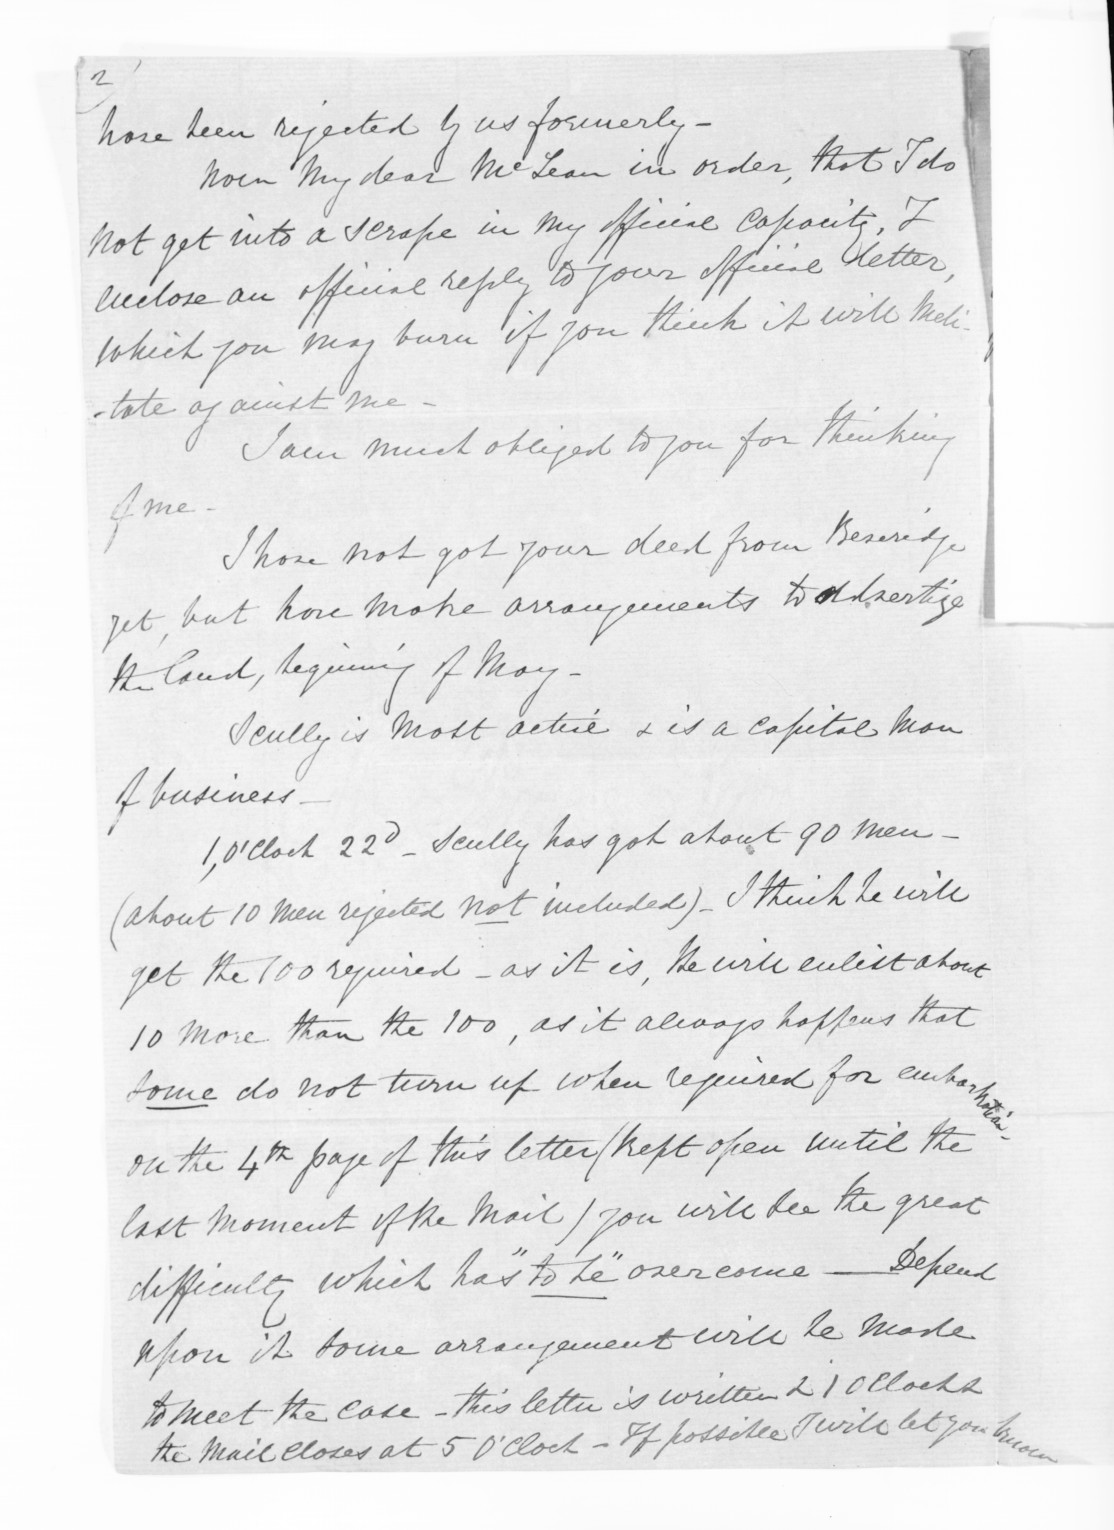 2
have been rejected by us formerly -
Now My dear McLean in order, that I do
not get into a scrape in my official capacity, I
enclose an official reply to your official letter,
which you may burn if you think it will Mili-
-tate against me -
I am much obliged to you for thinking
of me -
I have not got your deed from Beveridge
yet, but have make arrangements to Advertize
the land, begining of May -
Scully is most active & is a capital man
of business -
1, O'Clock 22d - Scully has got about 90 men -
(about 10 men rejected not included) - I think he will
get the 100 required - as it is, he will enlist about
10 more than the 100, as it always happens that
some do not turn up when required for embarkation -
on the 4th page of this letter (kept open until the
last moment of the Mail) you will see the great
difficulty which has "to be" overcome — Depend
upon it some arrangement will be made
to meet the case - this letter is written 1 O'Clock &
the Mail closes at 5 O'Clock - If possible I will let you know